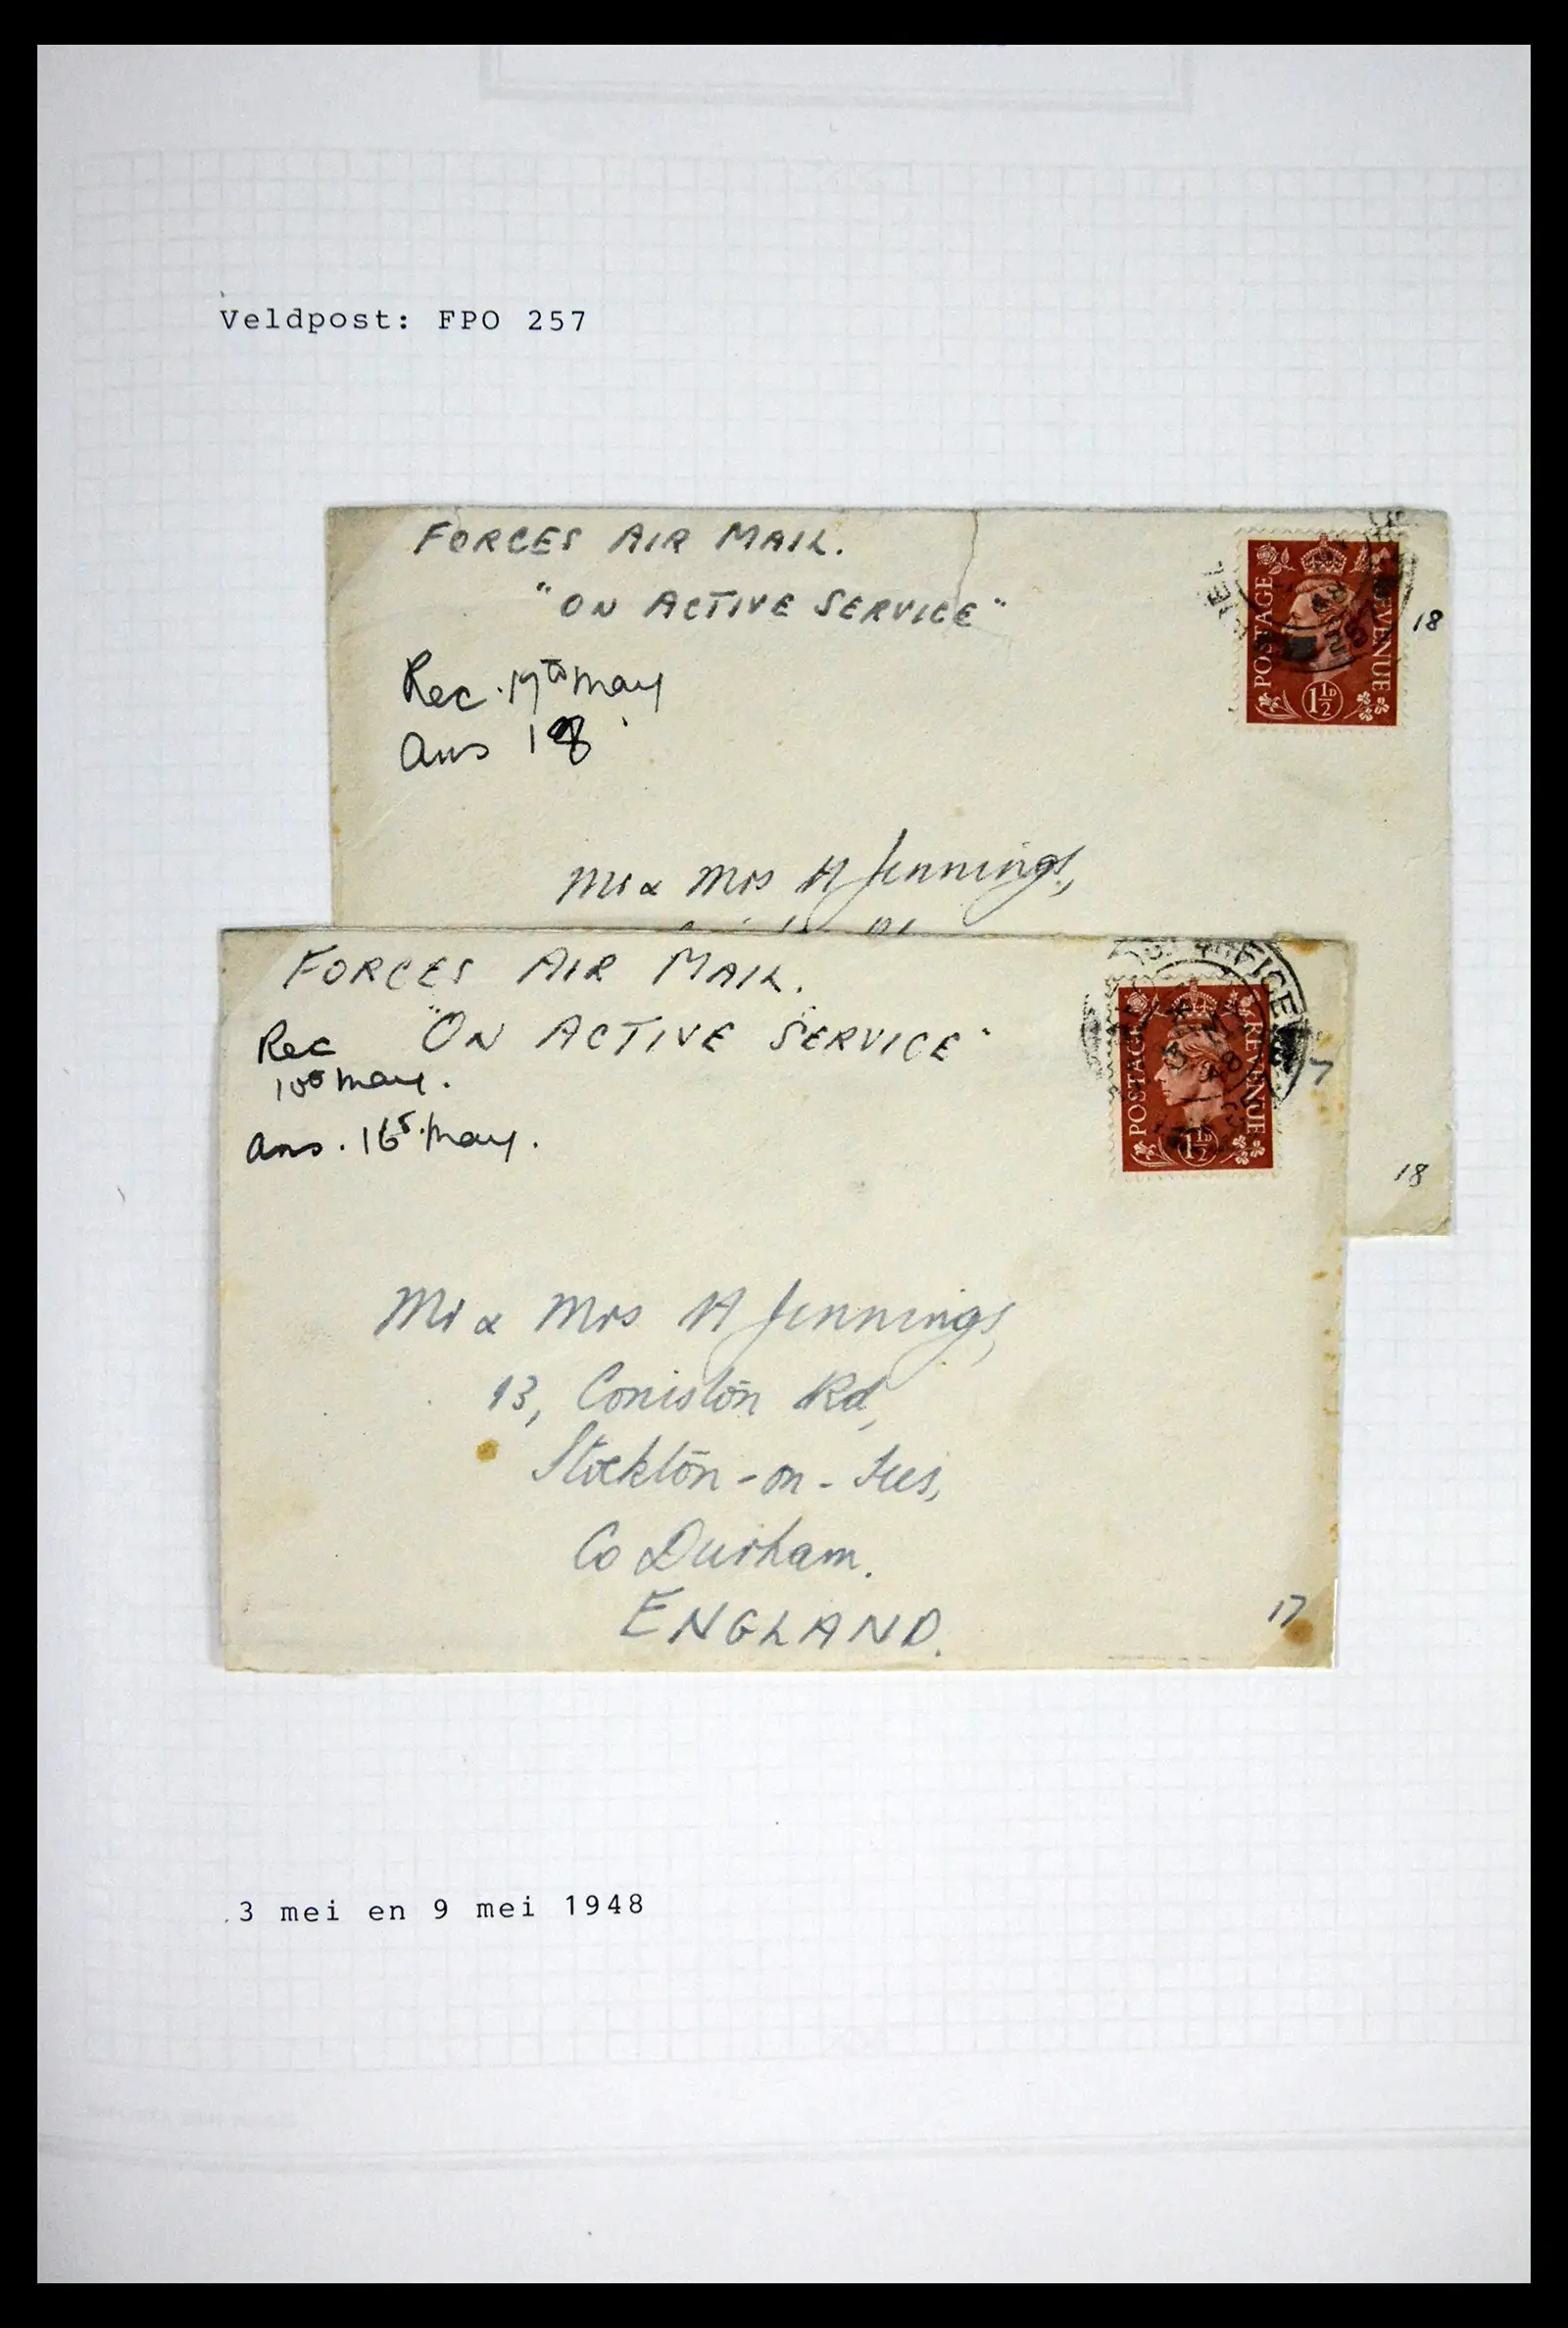 Veldpost: FPO 257
FORCES AIR MAIL.
"ON ACTIVE SERVICE"
Rec. 17th May
Ans 18
POSTAGE
REVENUE
1½D
18
Mr & Mrs H Jennings,
FORCES AIR MAIL.
"ON ACTIVE SERVICE"
Rec
10th May.
Ans. 16th May.
OFFICE
3 MY
48
POSTAGE
REVENUE
1½D
7
18
Mr & Mrs H Jennings,
13, Coniston Rd,
Stockton-on-Tees,
Co Durham.
ENGLAND.
17
3 mei en 9 mei 1948